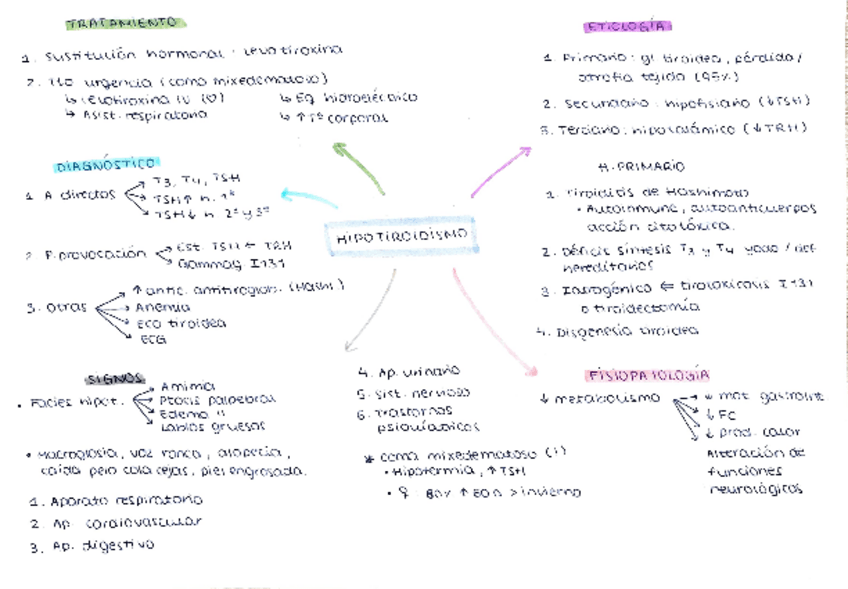 TRATAMIENTO
1. Sustitución hormonal: Levotiroxina
2. Tto urgencia (coma mixedematoso)
↳ Levotiroxina IV (O)
↳ Asist. respiratoria
↳ Eq. hidroeléctrico
↳ ↑ Tº corporal
DIAGNÓSTICO
1. A. directos
T3, T4, TSH
TSH ↑ h. 1º
TSH ↓ h. 2º y 3º
2. P. provocación
Est. TSH ← TRH
Gammag I131
3. Otras
↑ antic. antitiroglob. (Hashi)
Anemia
Eco tiroidea
ECG
SIGNOS
• Facies hipot.
Amimia
Ptosis palpebral
Edema "
Labios gruesos
• Macroglosia, voz ronca, alopecia,
caída pelo cola cejas, piel engrosada.
1. Aparato respiratorio
2. Ap. cardiovascular
3. Ap. digestivo
HIPOTIROIDISMO
4. Ap. urinario
5. Sist. nervioso
6. Trastornos
psiquiátricos
* coma mixedematoso (!)
• Hipotermia, ↑ TSH
• ♀ 80% ↑ EDAD > invierno
ETIOLOGÍA
1. Primario: gl tiroidea, pérdida/
atrofia tejido (95%)
2. Secundario: hipofisiario (↓TSH)
3. Terciario: hipotalámico (↓TRH)
H. PRIMARIO
1. Tiroiditis de Hashimoto
• Autoinmune, autoanticuerpos
acción citotóxica.
2. Déficit síntesis T3 y T4 yodo / def.
hereditarios
3. Iatrogénico ⇐ tirotoxicosis I131
o tiroidectomía
4. Disgenesia tiroidea
FISIOPATOLOGÍA
↓ metabolismo
↓ mot. gastroint.
↓ FC
↓ prod. calor
Alteración de
funciones
neurológicas